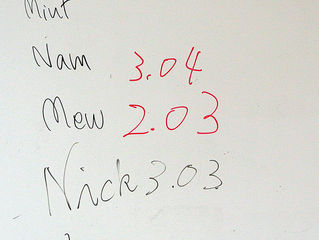 Mint
Nam 3.04
Mew 2.03
Nick 3.03